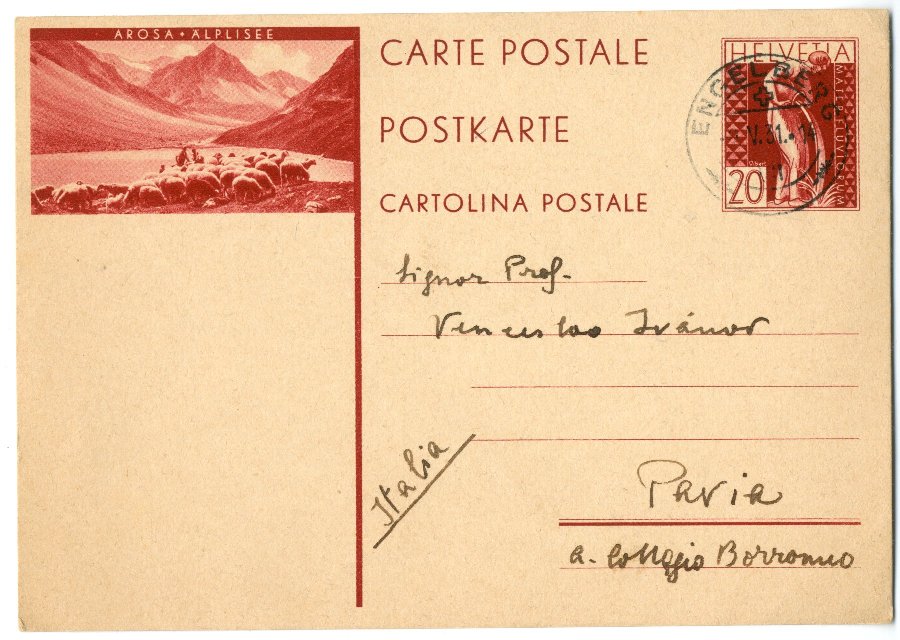 AROSA • ÄLPLISEE
CARTE POSTALE
POSTKARTE
CARTOLINA POSTALE
HELVETIA
20
ENGELBERG
V.31.
Signor Prof.
Venceslao Ivánov
Italia
Pavia
a. Collegio Borromeo